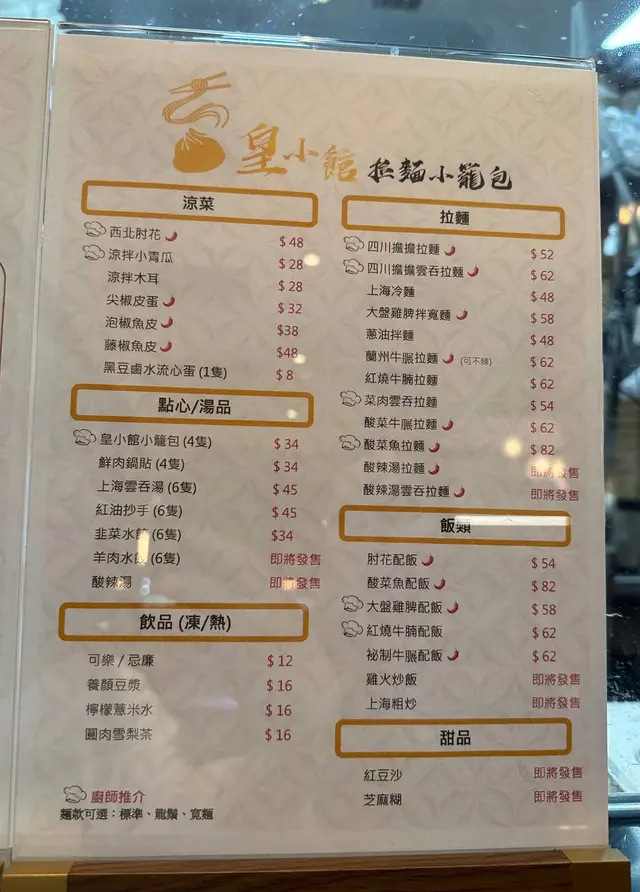 皇小館 拉麵小籠包
涼菜
西北肘花 $48
涼拌小青瓜 $28
涼拌木耳 $28
尖椒皮蛋 $32
泡椒魚皮 $38
藤椒魚皮 $48
黑豆鹵水流心蛋 (1隻) $8
點心/湯品
皇小館小籠包 (4隻) $34
鮮肉鍋貼 (4隻) $34
上海雲吞湯 (6隻) $45
紅油抄手 (6隻) $45
韭菜水餃 (6隻) $34
羊肉水餃 (6隻) 即將發售
酸辣湯 即將發售
飲品 (凍/熱)
可樂 / 忌廉 $12
養顏豆漿 $16
檸檬薏米水 $16
圓肉雪梨茶 $16
廚師推介
麵款可選：標準、龍鬚、寬麵
拉麵
四川擔擔拉麵 $52
四川擔擔雲吞拉麵 $62
上海冷麵 $48
大盤雞脾拌寬麵 $58
蔥油拌麵 $48
蘭州牛𦟌拉麵 (可不辣) $62
紅燒牛腩拉麵 $62
菜肉雲吞拉麵 $54
酸菜牛𦟌拉麵 $62
酸菜魚拉麵 $82
酸辣湯拉麵 即將發售
酸辣湯雲吞拉麵 即將發售
飯類
肘花配飯 $54
酸菜魚配飯 $82
大盤雞脾配飯 $58
紅燒牛腩配飯 $62
祕制牛𦟌配飯 $62
雞火炒飯 即將發售
上海粗炒 即將發售
甜品
紅豆沙 即將發售
芝麻糊 即將發售